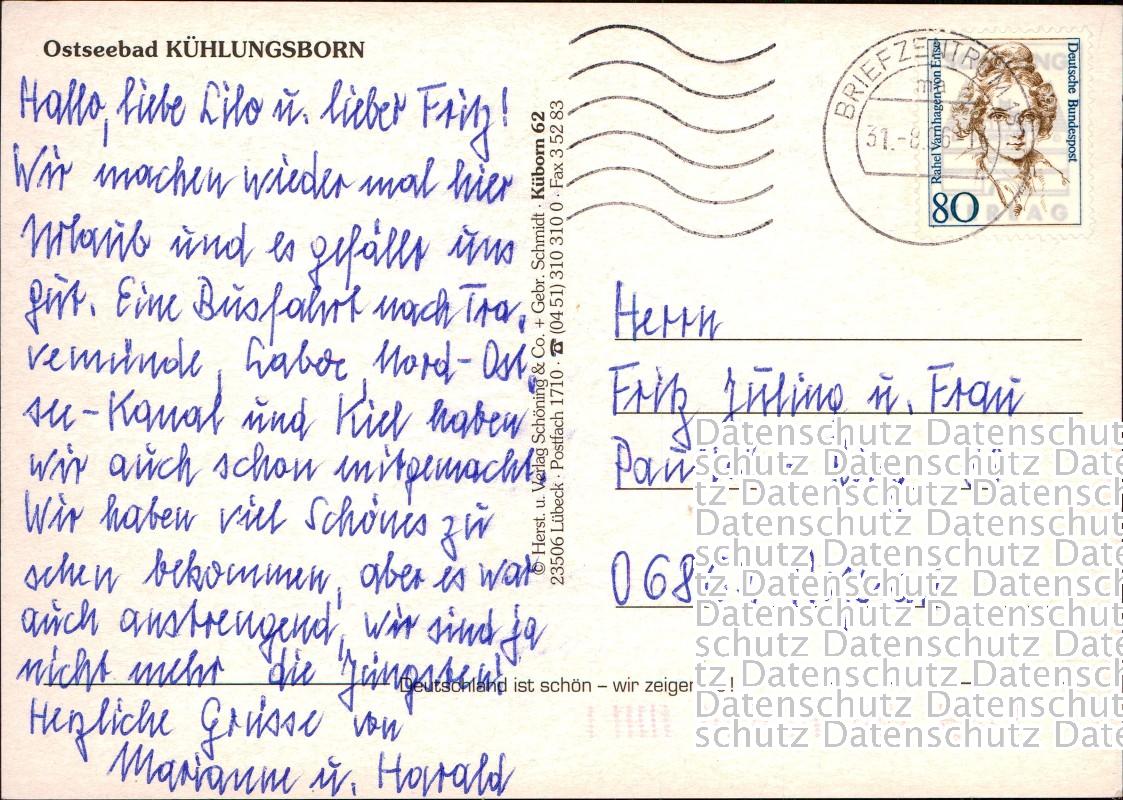 Ostseebad KÜHLUNGSBORN
Hallo, liebe Lilo u. lieber Fritz!
Wir machen wieder mal hier
Urlaub und es gefällt uns
gut. Eine Busfahrt nach Tra-
vemünde, Laboe, Nord-Ost-
see-Kanal und Kiel haben
wir auch schon mitgemacht.
Wir haben viel Schönes zu
sehen bekommen, aber es war
auch anstrengend, wir sind ja
nicht mehr die Jüngsten!
Herzliche Grüsse von
Marianne u. Harald
© Herst. u. Verlag Schöning & Co. + Gebr. Schmidt · Küborn 62
23506 Lübeck · Postfach 1710 · ☎ (04 51) 310 310 0 · Fax 3 52 83
BRIEFZENTRUM
31.-8.
Rahel Varnhagen von Ense
Deutsche Bundespost
80
Herrn
Fritz Juling u. Frau
Pau
068
Deutschland ist schön – wir zeigen
Datenschutz Datenschutz
schutz Datenschutz Date
tz Datenschutz Datensch
Datenschutz Datenschutz
schutz Datenschutz Date
tz Datenschutz Datensch
Datenschutz Datenschutz
schutz Datenschutz Date
tz Datenschutz Datensch
Datenschutz Datenschutz
schutz Datenschutz Date